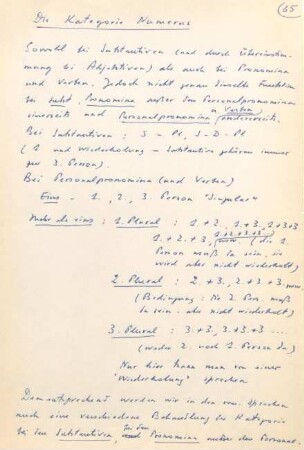 65
Die Kategorie Numerus
Sowohl bei Substantiven (und durch Übereinstim-
mung bei Adjektiven) als auch bei Pronomina
und Verben. Jedoch nicht genau dieselbe Funktion
bei Subst., Pronomina außer den Personalpronomina
einerseits und Personalpronomina u. Verben andererseits.
Bei Substantiven: S - Pl, S - D - Pl
(1 und Wiederholung - Substantive gehören immer
zur 3. Person).
Bei Personalpronomina (und Verben)
Eins - 1., 2., 3. Person "Singular"
Mehr als eins: 1. Plural: 1.+2., 1.+3., 1.+3+3
1.+2.+3., 1+2+3+3.. usw. (die 1.
Person muß da sein, sie
wird aber nicht wiederholt)
2. Plural: 2.+3., 2.+3.+3. usw.
(Bedingung: Die 2. Pers. muß
da sein, aber nicht wiederholt)
3. Plural: 3.+3, 3.+3+3 ....
(weder 2. noch 1. Person da)
Nur hier kann man von einer
"Wiederholung" sprechen
Dementsprechend werden wir in den rom. Sprachen
auch eine verschiedene Behandlung der Kategorie
bei den Substantiven, und den Pronomina außer den Personal-